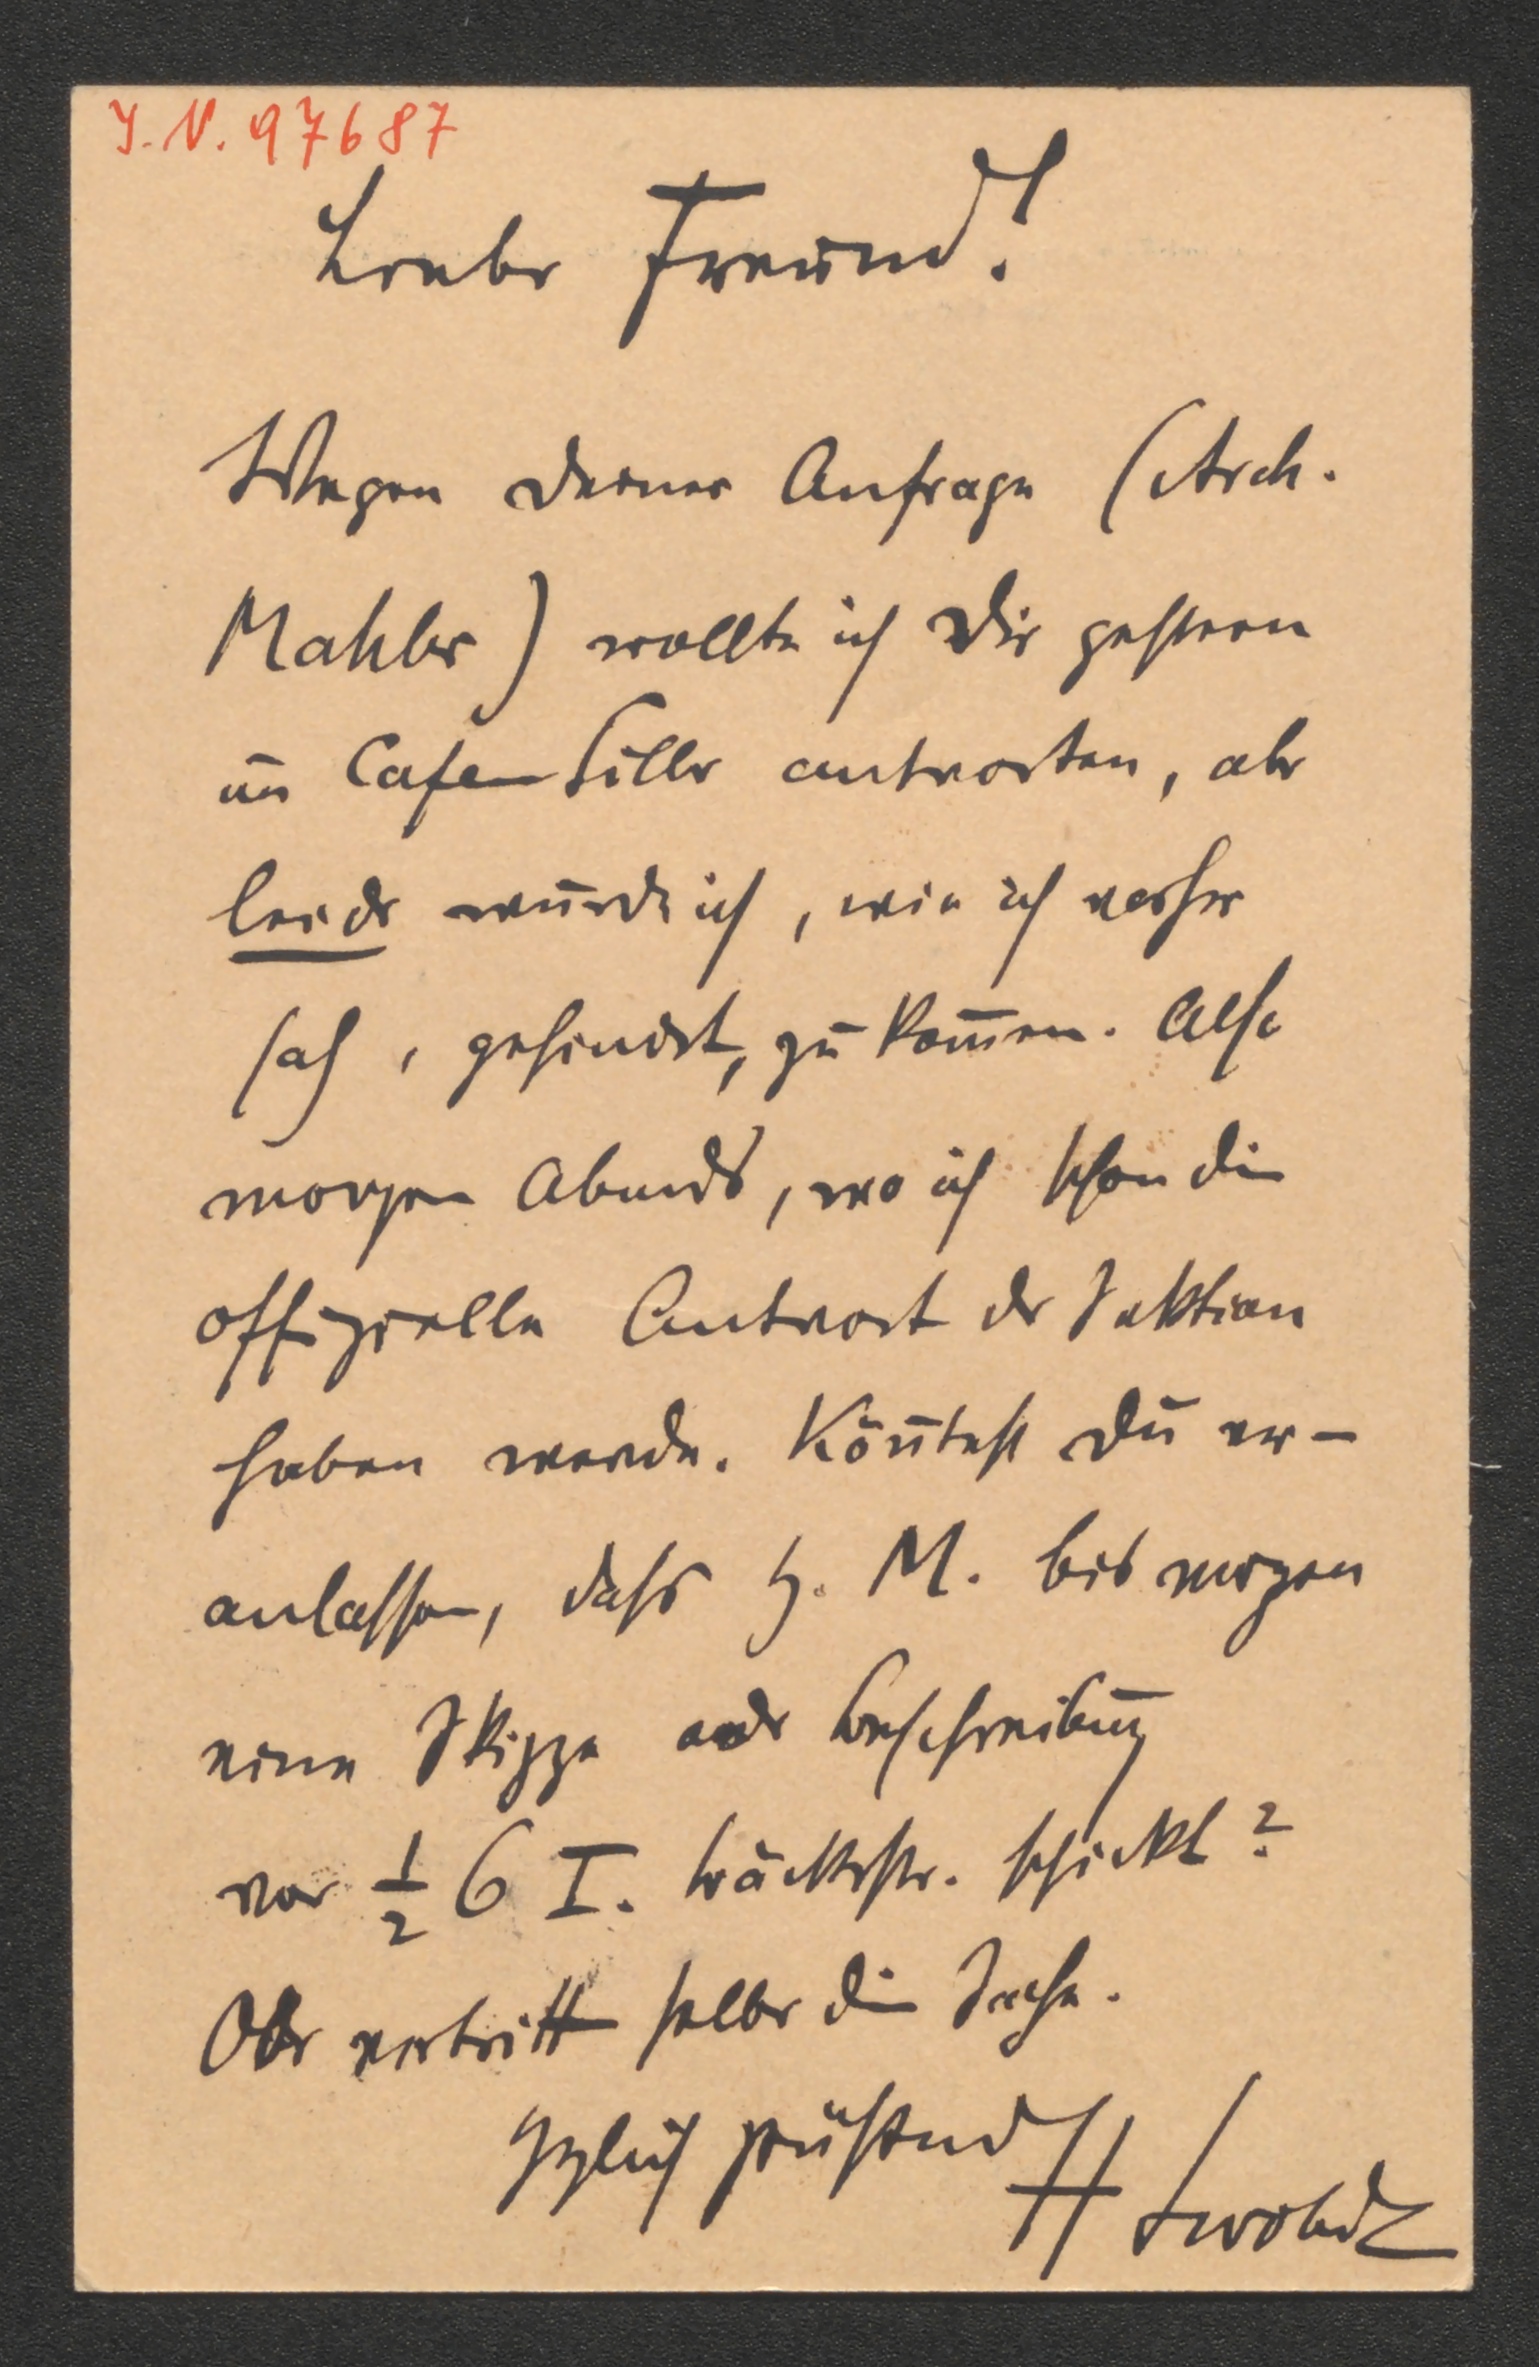 J. N. 97687
Lieber Freund!
Wegen Deiner Anfrage (Arch.
Mahler) wollte ich Dir gestern
im Café Siller antworten, aber
leider wurde ich, wie ich vorher
sah, gehindert, zu kom̄en. Also
morgen Abends, wo ich schon die
offizielle Antwort der Sektion
haben werde. Kön̄test Du ver-
anlassen, dass H. M. bis morgen
eine Skizze oder Beschreibung
vor ½ 6 I. Bräunerstr. schickt?
Oder vertritt selber die Sache.
Hzlich grüßend
H Swoboda